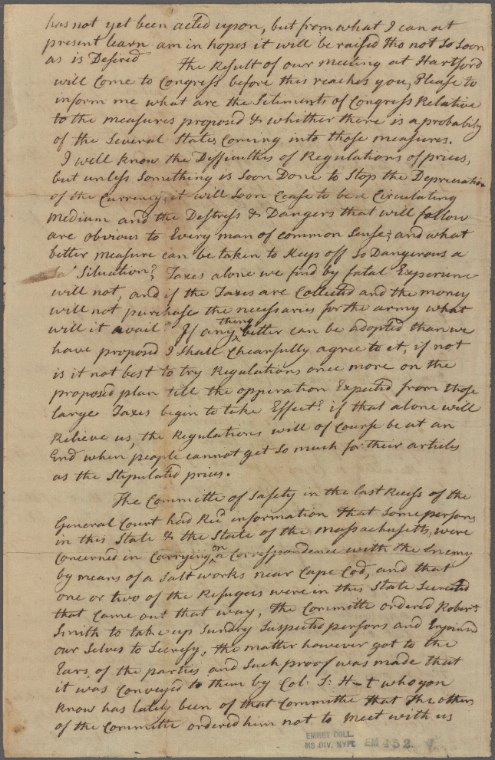 has not yet been acted upon, but from what I can at
present learn am in hopes it will be raised tho not so soon
as is Desired The Result of our meeting at Hartford
will Come to Congress before this reaches you, Please to
inform me what are the Setiments of Congress Relative
to the measures proposed & whether there is a probability
of the Several States Coming into those measures.
I well know the Difficulties of Regulations of prices,
but unless Something is Soon Done to Stop the Depreciation
of the Currency, it will Soon Cease to be a Circulating
medium and the Destress & Dangers that will follow
are obvious to Every man of common Sense; and what
better measure can be taken to Keep off So Dangerous a
Situation? Taxes alone we find by fatal Experience
will not, and if the Taxes are Collected and the money
will not purchase the necessaries for the army what
will it avail? If any thing better can be adopted than we
have proposed I Shall Chearfully agree to it, if not
is it not best to try Regulations once more on the
proposed plan till the opperation Expected from those
large Taxes begin to take Effect? if that alone will
Relieve us, the Regulations will of Course be at an
End when people cannot get So much for their articles
as the Stipulated prices.
The Committe of Safety in the last Recess of the
General Court had Recd information that Some persons
in this State & the State of the Massachusetts, were
Concerned in Carrying on a Correspondence with the Enemy
by means of a Salt works near Cape Cod, and that
one or two of the Refugees were in this State Secreted
that Came out that way, the Committe ordered Robert
Smith to take up Sundry Suspected persons and Enjoined
our Selves to Secresy, the matter however got to the
Ears of the parties and Such proof was made that
it was Conveyed to them by Col. S: H-t who you
Know has lately been of that Committe that the others
of the Committe ordered him not to meet with us
EMMET COLL.
MS. DIV. NYPL EM 452